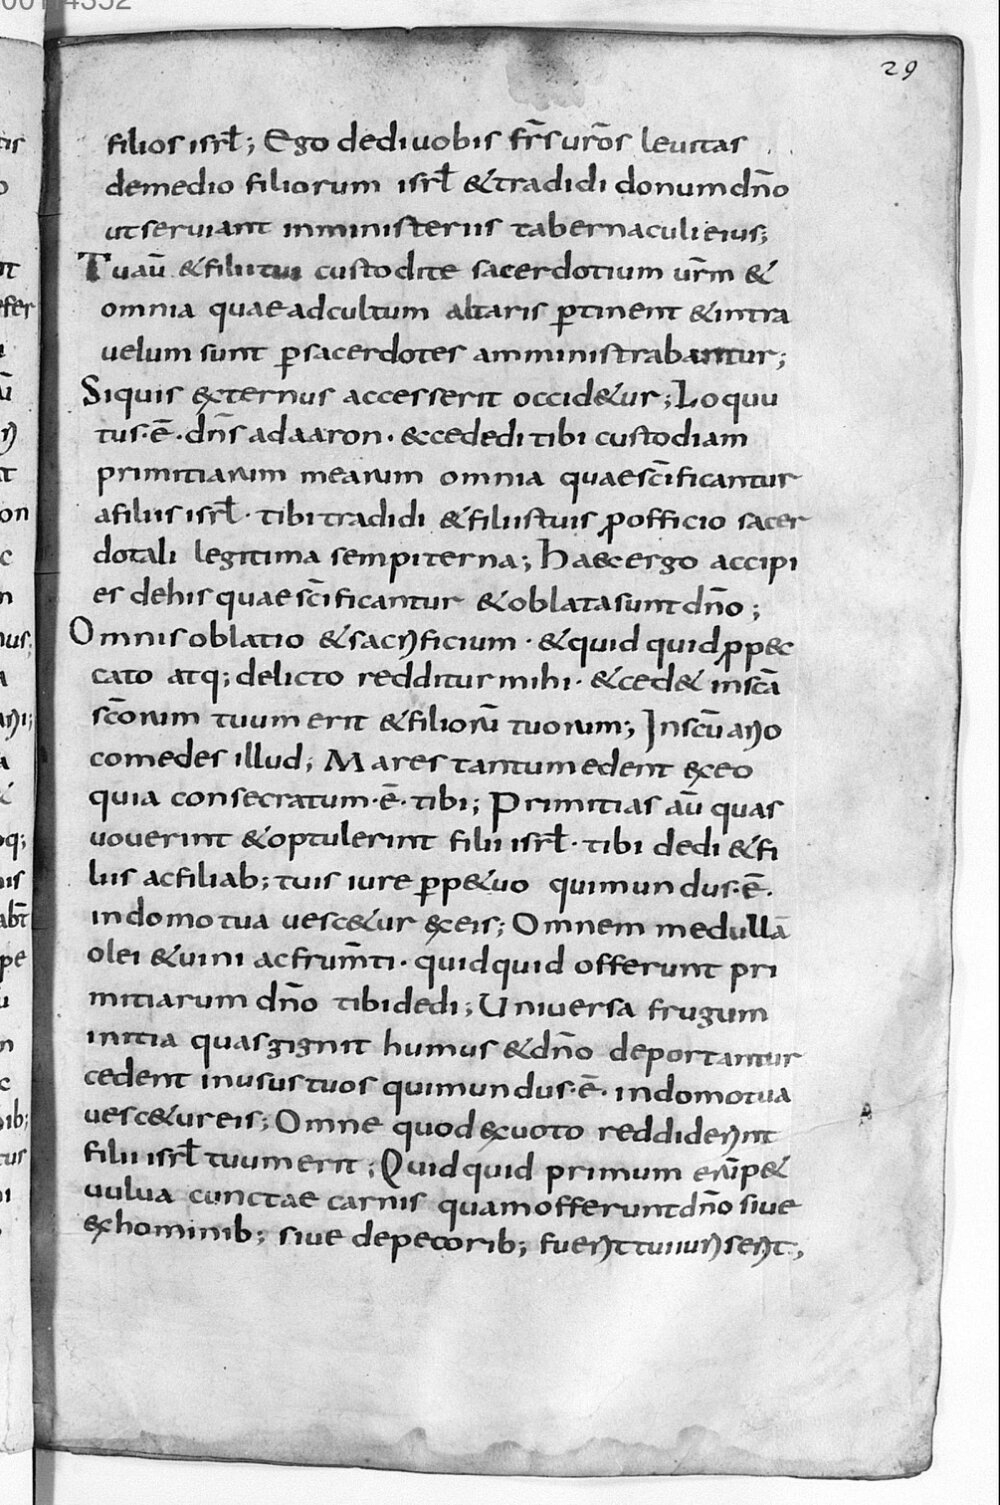 29
filios isrł; Ego dedi uobis fr̄s ur̄os leuitas
de medio filiorum isrł & tradidi donum dn̄o
ut seruiant in ministeriis tabernaculi eius;
Tu aū & filii tui custodite sacerdotium ur̄m &
omnia quae ad cultum altaris ꝑtinent & intra
uelum sunt ꝑ sacerdotes amministrabantur;
Siquis externus accesserit occid&ur; Loquu
tus·ē·dn̄s ad aaron· ecce dedi tibi custodiam
primitiarum mearum omnia quae sc̄ificantur
a filiis isrł· tibi tradidi & filiis tuis ꝓ officio sacer
dotali legitima sempiterna; Haec ergo accipi
es de his quae sc̄ificantur & oblata sunt dn̄o;
Omnis oblatio & sacrificium· & quidquid ꝓ pec
cato atq; delicto redditur mihi· & ced& in sc̄a
sc̄orum tuum erit & filiorū tuorum; In sc̄uario
comedes illud; Mares tantum edent ex eo
quia consecratum·ē·tibi; Primitias aū quas
uouerint & optulerint filii isrł· tibi dedi & fi
liis ac filiab; tuis iure ꝑp&uo qui mundus·ē·
in domo tua uesc&ur ex eis; Omnem medullā
olei & uini ac frum̄ti· quidquid offerunt pri
mitiarum dn̄o tibi dedi; Uniuersa frugum
initia quas gignit humus & dn̄o deportantur
cedent in usus tuos qui mundus·ē· in domo tua
uesc&ur eis; Omne quod ex uoto reddiderint
filii isrł tuum erit; Quidquid primum erūp&
uulua cunctae carnis quam offerunt dn̄o siue
ex hominib; siue de pecorib; fuerit tui iuris erit;